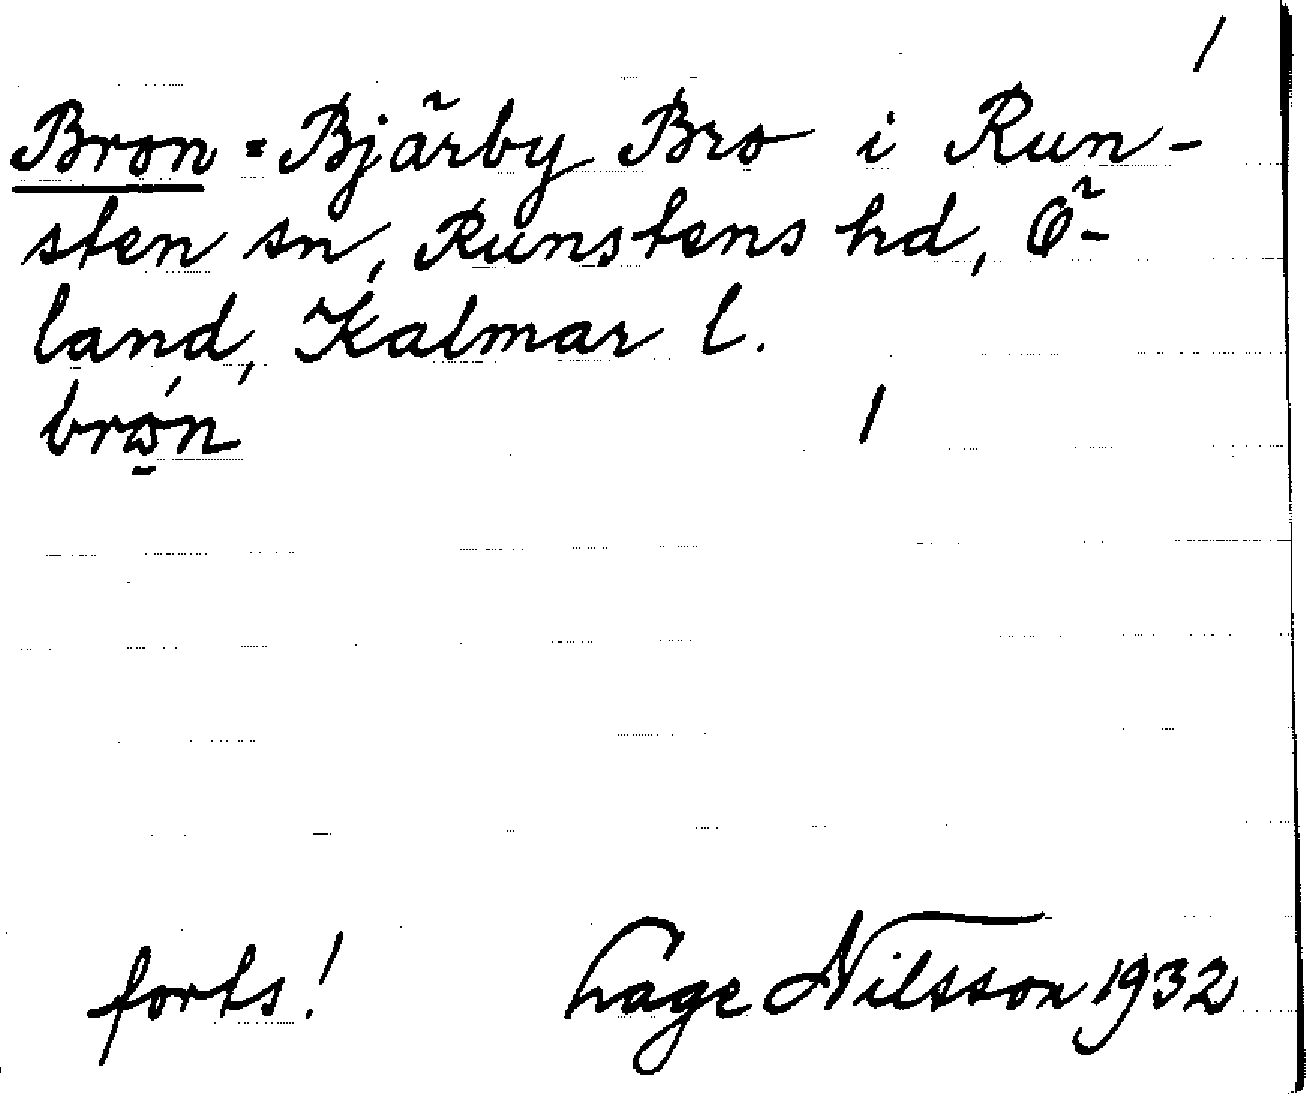 Bron = Bjärby Bro i Run-
sten sn, Runstens hd, Ö-
land, Kalmar l.
forts! Lage Nilsson 1932